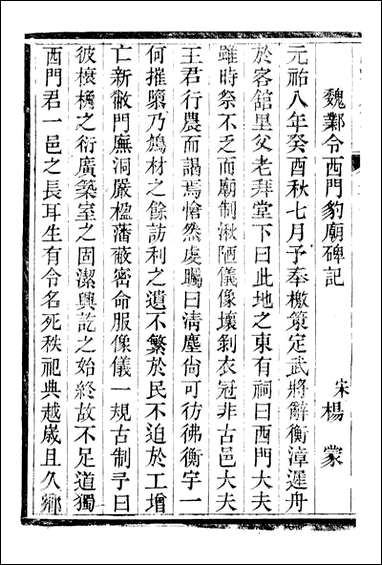 魏鄴令西門豹廟碑記
宋 楊蒙
元祐八年癸酉秋七月予奉檄策定武將解衡漳遲舟
於客舘里父老拜堂下曰此地之東有祠曰西門大夫
雖時祭不乏而廟制湫陋儀像壞剝衣冠非古邑大夫
王君行農而謁焉愴然虔矚曰淸塵尙可彷彿衡宇一
何摧隳乃鳩材之餘訪利之遺不繁於民不迫於工增
亡新敝門廡洞嚴楹藩敞密命服像儀一規古制予曰
彼榱桷之衍廣築室之固潔興訖之始終故不足道獨
西門君一邑之長耳生有令名死秩祀典越歲且久鄉